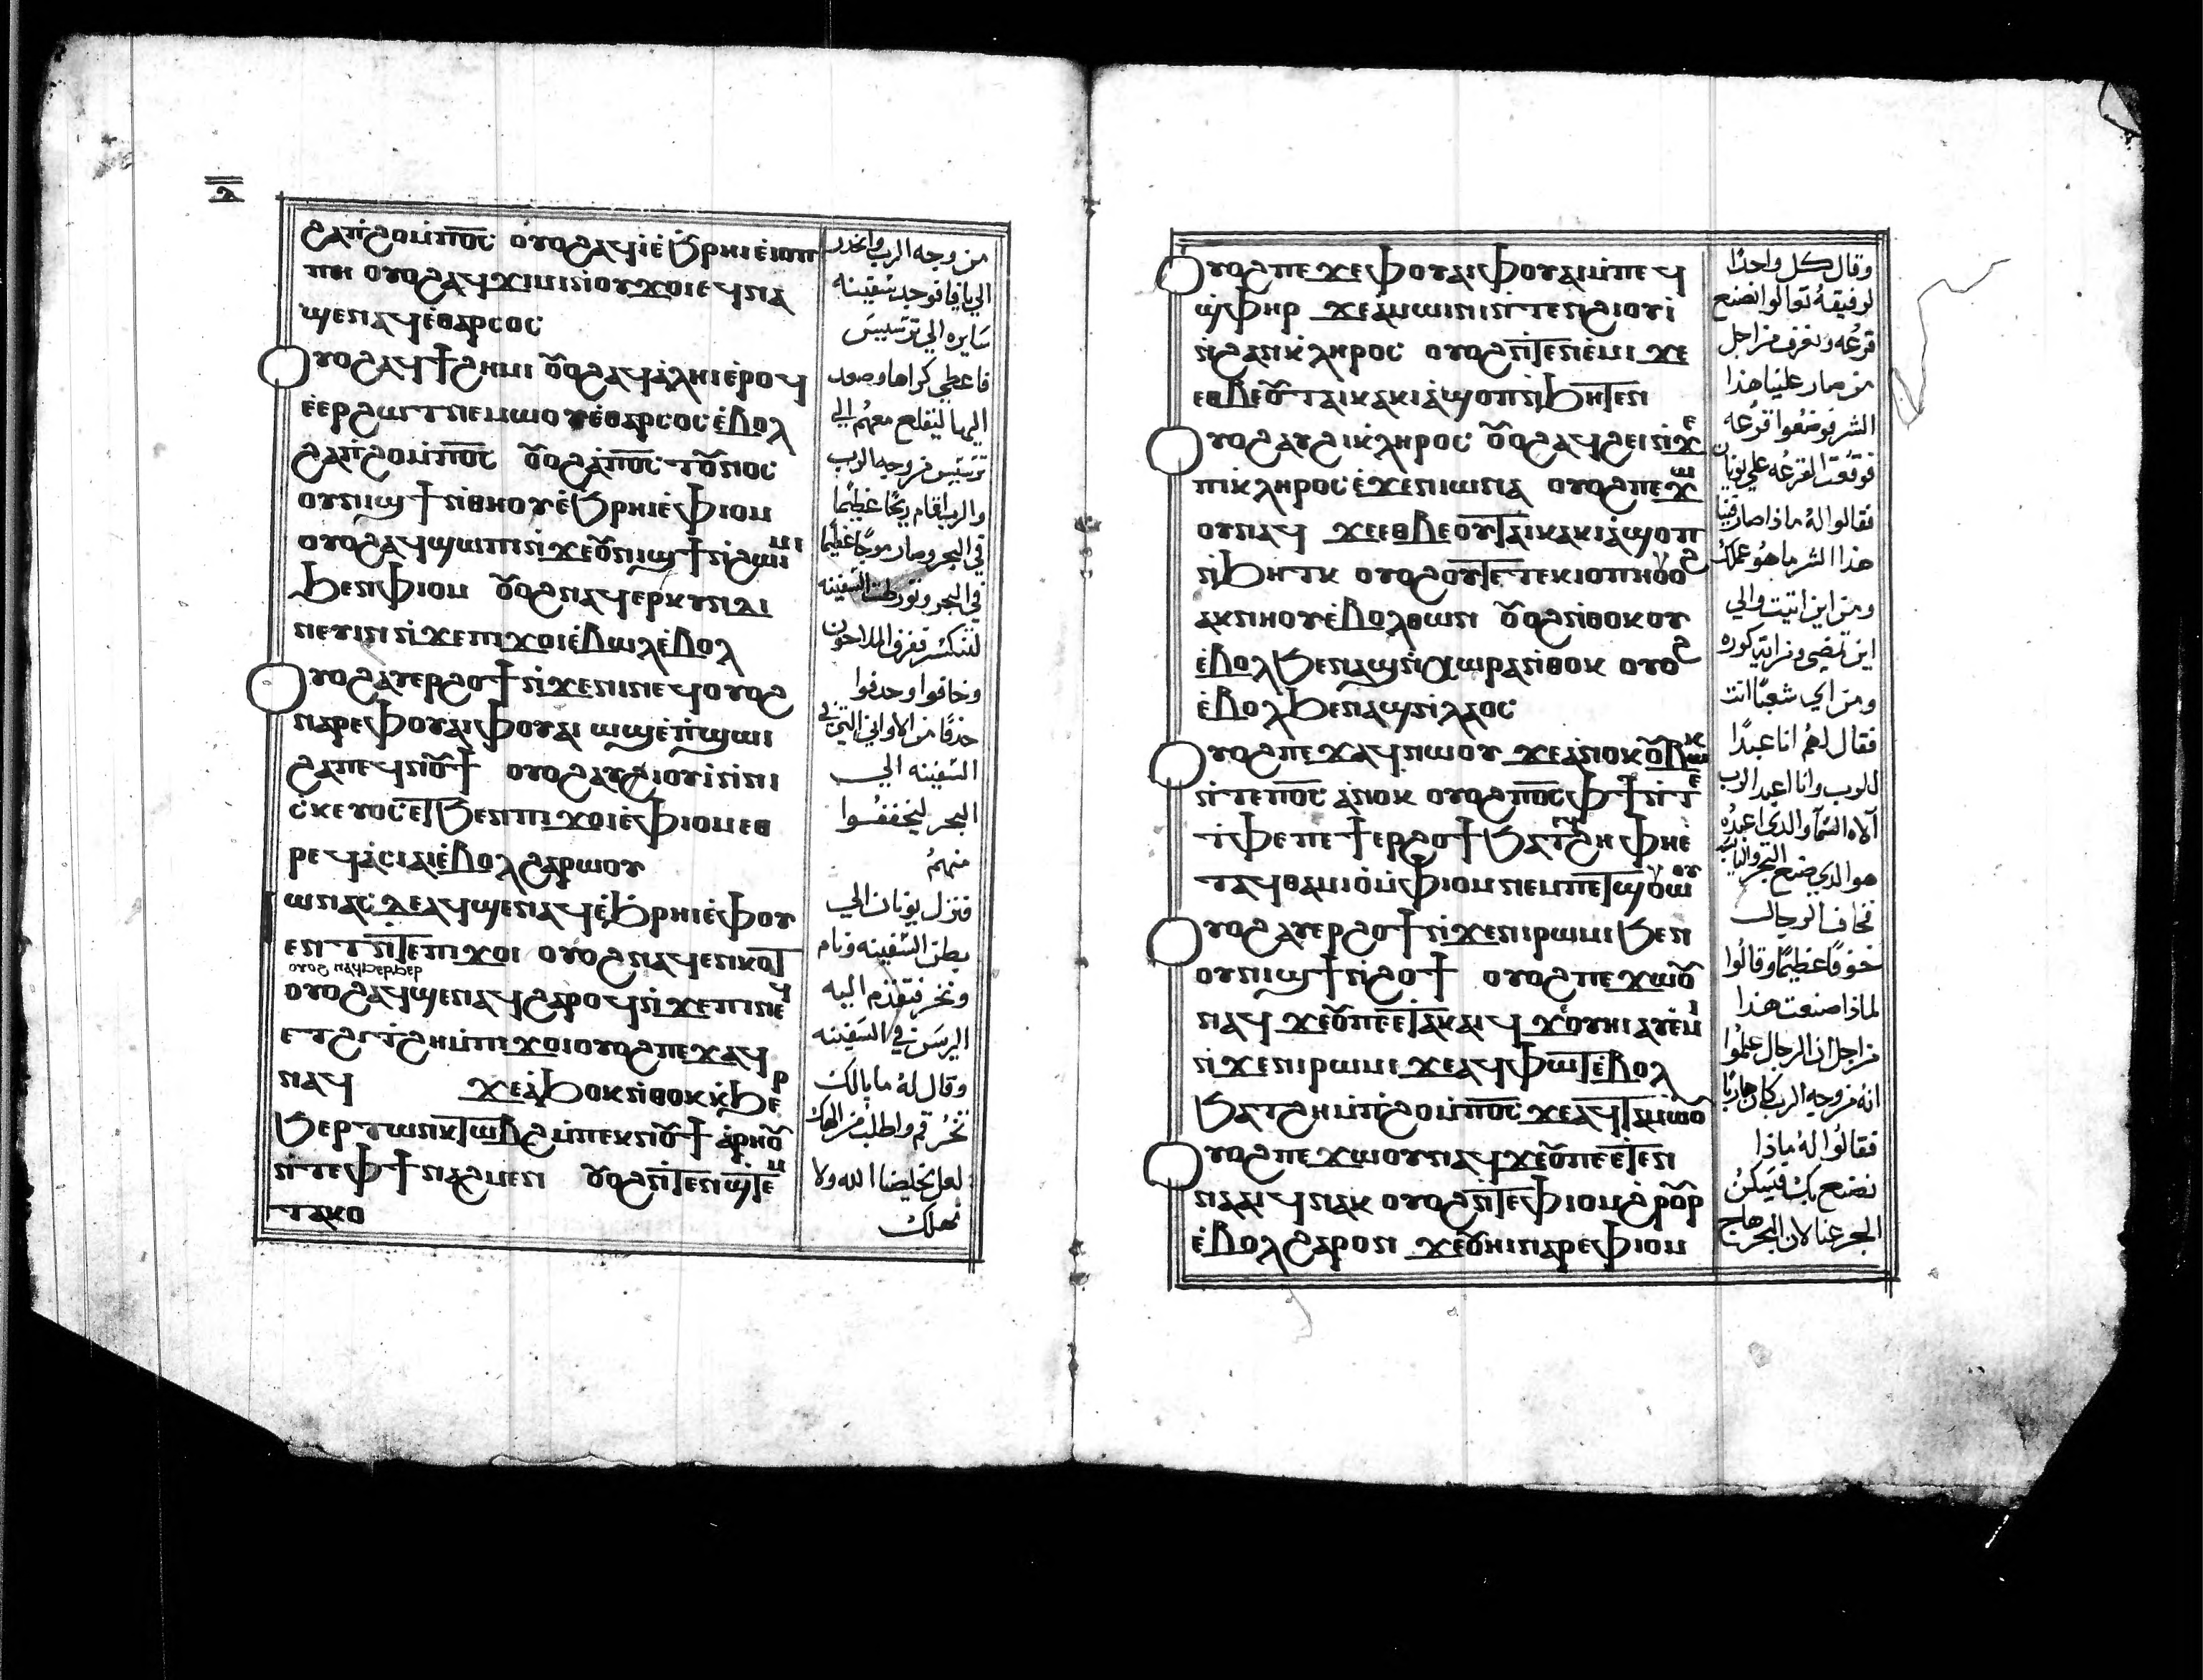 ⲇ
ϩⲁⲡϩⲟⲙ̀ⲡⲟ̅ⲥ̅ ⲟⲩⲟϩⲁϥⲓ̀ⲉ̀ϧⲣⲏⲓⲉ̀ⲓⲟⲡ
ⲡⲏ ⲟⲩⲟϩⲁϥϫⲓⲙⲓⲛ̀ⲟⲩϫⲟⲓⲉϥⲛⲁ
ϣⲉⲛⲁϥⲉ̀ⲑⲁⲣⲥⲟⲥ
Ⲟⲩⲟϩⲁϥϯϩⲏⲙⲓ ⲟⲩⲟϩⲁϥⲁ̀ⲗⲏⲓⲉ̀ⲣⲟϥ
ⲉ̀ⲉⲣϩⲱⲧⲛⲉⲙⲱⲟⲩⲉ̀ⲑⲁⲣⲥⲟⲥ ⲉ̀ⲃⲟⲗ
ϩⲁⲡ̀ϩⲟⲙ̀ⲡⲟ̅ⲥ̅ ⲟⲩⲟϩⲁ̀ⲡⲟ̅ⲥ̅ ⲧⲟⲩⲛⲟⲥ
ⲟⲩⲛⲓϣϯⲛ̀ⲑⲏⲟⲩⲉ̀ϧⲣⲏⲓⲉ̀ⲫⲓⲟⲙ
ⲟⲩⲟϩⲁϥϣⲱⲡⲓⲛ̀ϫⲉⲟⲩⲛⲓϣϯⲛ̀ϩⲱⲓⲙⲓ
ϧⲉⲛⲫⲓⲟⲙ ⲟⲩⲟϩⲛⲁϥⲉⲣⲕⲩⲛⲇⲓ
ⲛⲉⲩⲓⲛⲛ̀ϫⲉⲡⲓϫⲟⲓⲉ̀ⲃⲱⲗⲉ̀ⲃⲟⲗ
Ⲟⲩⲟϩⲁⲩⲉⲣϩⲟϯⲛ̀ϫⲉⲛⲓⲛⲉϥⲟⲩⲟϩ
ⲛⲁⲣⲉⲫⲟⲩⲁⲓⲫⲟⲩⲁⲓ ⲱϣⲉ̀ⲡ̀ϣⲱⲓ
ϩⲁⲡⲉϥⲛⲟⲩϯ ⲟⲩⲟϩⲁⲩϩⲓⲟⲩⲓ̀ⲛ̀ⲛⲓ
ⲥ̀ⲕⲉⲩⲟⲥⲉⲧϧⲉⲛⲡⲓϫⲟⲓⲉ̀ⲫⲓⲟⲙⲉⲑ
ⲣⲉϥⲁ̀ⲥⲓⲁⲓⲉ̀ⲃⲟⲗϩⲁⲣⲱⲟⲩ
ⲱⲛⲁⲥ ⲇⲉⲁϥϣⲉⲛⲁϥⲉ̀ϧⲣⲏⲓⲉ̀ⲫⲟⲩ
ⲉⲛⲧⲛ̀ⲧⲉⲡⲓϫⲟⲓ ⲟⲩⲟϩⲛⲁϥⲉⲛⲕⲟⲧ
ⲟⲩⲟϩ ⲛⲁϥⲥⲉⲣⲥⲉⲣ
ⲟⲩⲟϩⲁϥϣⲉⲛⲁϥϩⲁⲣⲟϥⲛ̀ϫⲉⲡⲓⲛⲉϥ
ⲉⲧϩⲓⲧ̀ϩⲏⲙ̀ⲡⲓϫⲟⲓⲟⲩⲟϩⲡⲉϫⲁϥ
ⲛⲁϥ ϫⲉⲁ̀ϧⲟⲕⲛ̀ⲑⲟⲕⲕ̀ϧⲉⲣ
ϧⲉⲣ ⲧⲱⲛⲕⲧⲱⲃϩⲙ̀ⲡⲉⲕⲛⲟⲩϯ ⲁ̀ⲣⲏⲟⲩ
ⲛ̀ⲧⲉⲫϯⲛⲁϩⲙⲉⲛ ⲟⲩⲟϩⲛ̀ⲧⲉⲛϣ̀ⲧⲉⲙ
ⲧⲁⲕⲟ
من وجه الرب وانحدر
الي يافا فوجد سفينه
سايره الي ترسيس
فاعطي كراها وصعد
اليها ليقلع معهم الي
ترسيس من وجه الرب
والرب اقام ريحًا عظيمًا
في البحر وصار موجًا عظيمًا
في البحر وتورطت السفينه
لتنكسر تفزق الملاحون
وخافوا وحدفوا
حذفًا من الاواني التي في
السفينه الي
البحر ليخففوا
منهم
فنزل يونان الي
بطن السفينه ونام
ونخر فتقدم اليه
الريس في السفينه
وقال له ما بالك
تنخر قم واطلب من الهك
لعل يخلصنا الله ولا
نهلك
Ⲟⲩⲟϩⲡⲉϫⲉⲫⲟⲩⲁⲓⲫⲟⲩⲁⲓⲙ̀ⲡⲉϥ
ϣ̀ⲫⲏⲣ ϫⲉⲁ̀ⲙⲱⲓⲛⲓⲛ̀ⲧⲉⲛϩⲓⲟⲩⲓ̀
ⲛ̀ϩⲁⲛⲕ̀ⲗⲏⲣⲟⲥ ⲟⲩⲟϩⲛ̀ⲧⲉⲛⲉ̀ⲙⲓ ϫⲉ
ⲉⲑⲃⲉⲟⲩⲧⲁⲓⲕⲁⲕⲓⲁ̀ϣⲟⲡⲛ̀ϧⲏⲧⲉⲛ
Ⲟⲩⲟϩⲁⲩϩⲓⲕ̀ⲗⲏⲣⲟⲥ ⲟⲩⲟϩⲁϥϩⲉⲓⲛ̀ϫⲉ
ⲡⲓⲕ̀ⲗⲏⲣⲟⲥⲉ̀ϫⲉⲛⲓⲱⲛⲁ ⲟⲩⲟϩⲡⲉϫⲱ
ⲟⲩⲛⲁϥ ϫⲉⲉⲑⲃⲉⲟⲩⲧⲁⲓⲕⲁⲕⲓⲁ̀ϣⲟⲡ
ⲛ̀ϧⲏⲧⲕ ⲟⲩⲟϩⲟⲩⲧⲉⲧⲉⲕⲓⲟⲡⲏⲟⲩⲟϩ
ⲁⲕⲛⲏⲟⲩⲉ̀ⲃⲟⲗⲑⲱⲛ ⲟⲩⲟϩⲛ̀ⲑⲟⲕⲟⲩ
ⲉ̀ⲃⲟⲗϧⲉⲛⲁϣⲛ̀ⲭⲱⲣⲁⲛ̀ⲑⲟⲕ ⲟⲩⲟϩ
ⲉ̀ⲃⲟⲗϧⲉⲛⲁϣⲛ̀ⲗⲁⲟⲥ
Ⲟⲩⲟϩⲡⲉϫⲁϥⲛⲱⲟⲩ ϫⲉⲁ̀ⲛⲟⲕⲟⲩⲃⲱⲕ
ⲛ̀ⲧⲉⲡⲟ̅ⲥ̅ ⲁ̀ⲛⲟⲕ ⲟⲩⲟϩⲡⲟ̅ⲥ̅ⲫϯⲛ̀ⲧⲉ
ⲧ̀ⲫⲉⲡⲉϯⲉⲣϩⲟϯϧⲁⲧϩⲏ ⲫⲏⲉ̀
ⲧⲁϥⲑⲁⲙⲓⲟ̀ⲙ̀ⲫⲓⲟⲙⲛⲉⲙⲡⲉⲧϣⲟⲩⲱⲟⲩ
Ⲟⲩⲟϩⲁⲩⲉⲣϩⲟϯⲛ̀ϫⲉⲛⲓⲣⲱⲙⲓϧⲉⲛ
ⲟⲩⲛⲓϣϯⲛ̀ϩⲟϯ ⲟⲩⲟϩⲡⲉϫⲱⲟⲩ
ⲛⲁϥ ϫⲉⲟⲩⲡⲉⲉⲧⲁⲕⲁⲓϥ ϫⲟⲩⲏⲓⲁⲩⲉ̀ⲙⲓ
ⲛ̀ϫⲉⲛⲓⲣⲱⲙⲓ ϫⲉⲁϥⲫⲱⲧⲉ̀ⲃⲟⲗ
ϧⲁⲧϩⲏⲙ̀ⲡ̀ϩⲟⲙ̀ⲡⲟ̅ⲥ̅ ϫⲉⲁϥⲧⲁⲙⲱⲟⲩ
Ⲟⲩⲟϩⲡⲉϫⲱⲟⲩⲛⲁϥϫⲉⲟⲩⲡⲉⲉⲧⲉⲛ
ⲛⲁⲁⲓϥⲛⲁⲕ ⲟⲩⲟϩⲛ̀ⲧⲉⲫⲓⲟⲙϩⲣⲟⲩⲣ
ⲉ̀ⲃⲟⲗϩⲁⲣⲟⲛ ϫⲉⲟⲩⲏⲓⲛⲁⲣⲉⲫⲓⲟⲙ
وقال كل واحدًا
لرفيقه تعالوا نصنع
قرعه ونعرف من اجل
من صار علينا هذا
الشر فوضعوا قرعه
فوقعت القرعه علي يونان
فقالوا له ماذا صار فينا
هذا الشر ما هو عملك
ومن اين اتيت والي
اين تمضي ومن اية كوره
ومن اي شعبًا انت
فقال لهم انا عبدًا
للرب وانا اعبد الرب
الاه السما والدي اعبده
هو الدي صنع البحر واليابسه
فخاف الرجال
خوفًا عظيمًا وقالوا
لماذا صنعت هذا
من اجل ان الرجال علموا
انه من وجه الرب كان هاربًا
فقالوا له ماذا
نصنع بك فيسكن
البحر عنا لان البحر هاج